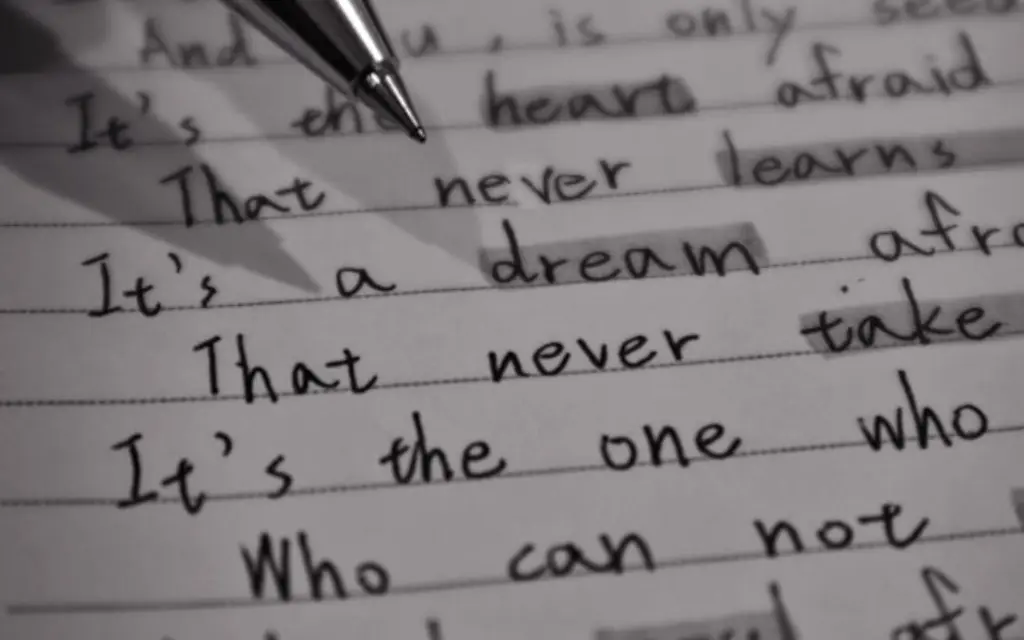 And u, is only
It's the heart afraid
That never learns
It's a dream afr
That never take
It's the one who
Who can not
afr